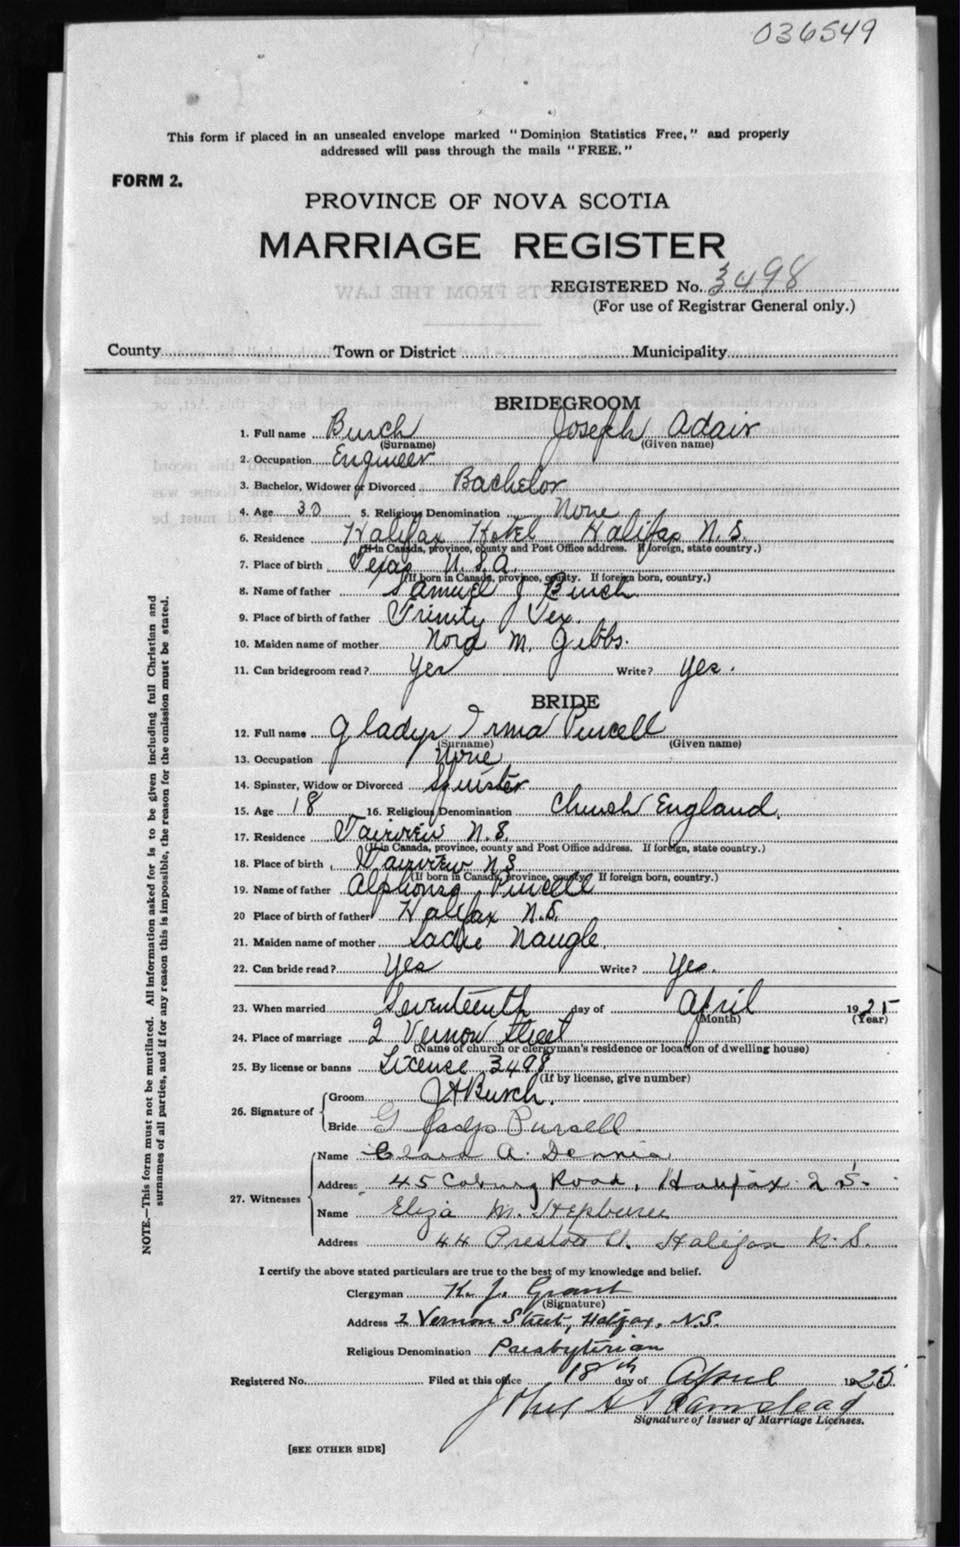 036549
This form if placed in an unsealed envelope marked "Dominion Statistics Free," and properly
addressed will pass through the mails "FREE."
FORM 2.
PROVINCE OF NOVA SCOTIA
MARRIAGE REGISTER
REGISTERED No. 3498
(For use of Registrar General only.)
County Town or District Municipality
BRIDEGROOM
1. Full name Burch Joseph Adair
(Surname) (Given name)
2. Occupation Engineer
3. Bachelor, Widower or Divorced Bachelor
4. Age 30 5. Religious Denomination None
6. Residence Halifax Hotel Halifax N.S.
(If in Canada, province, county and Post Office address. If foreign, state country.)
7. Place of birth Texas U.S.A.
(If born in Canada, province, county. If foreign born, country.)
8. Name of father Samuel J Burch
9. Place of birth of father Trinity Tex.
10. Maiden name of mother Nora M. Gibbs.
11. Can bridegroom read? Yes Write? Yes.
BRIDE
12. Full name Gladys Irma Purcell
(Surname) (Given name)
13. Occupation None
14. Spinster, Widow or Divorced Spinster
15. Age 18 16. Religious Denomination Church England.
17. Residence Fairview N.S.
(If in Canada, province, county and Post Office address. If foreign, state country.)
18. Place of birth Fairview N.S
(If born in Canada, province, county. If foreign born, country.)
19. Name of father Alphonso Purcell
20 Place of birth of father Halifax N.S.
21. Maiden name of mother Sadie Naugle.
22. Can bride read? Yes Write? Yes.
23. When married Seventeenth day of April 1925
(Month) (Year)
24. Place of marriage 2 Vernon Street
(Name of church or clergyman's residence or location of dwelling house)
25. By license or banns License 3498
(If by license, give number)
26. Signature of Groom JA Burch.
Bride Gladys Purcell
27. Witnesses Name A. Dennis
Address 45 Coburg Road, Halifax
Name Eliza M. Hepburn
Address 44 Preston St. Halifax N.S.
I certify the above stated particulars are true to the best of my knowledge and belief.
Clergyman K. J. Grant
(Signature)
Address 2 Vernon Street, Halifax, N.S.
Religious Denomination Presbyterian
Registered No. Filed at this office 18th day of April 1925
Signature of Issuer of Marriage Licenses.
[SEE OTHER SIDE]
NOTE.—This form must not be mutilated. All information asked for is to be given including full Christian and
surnames of all parties, and if for any reason this is impossible, the reason for the omission must be stated.